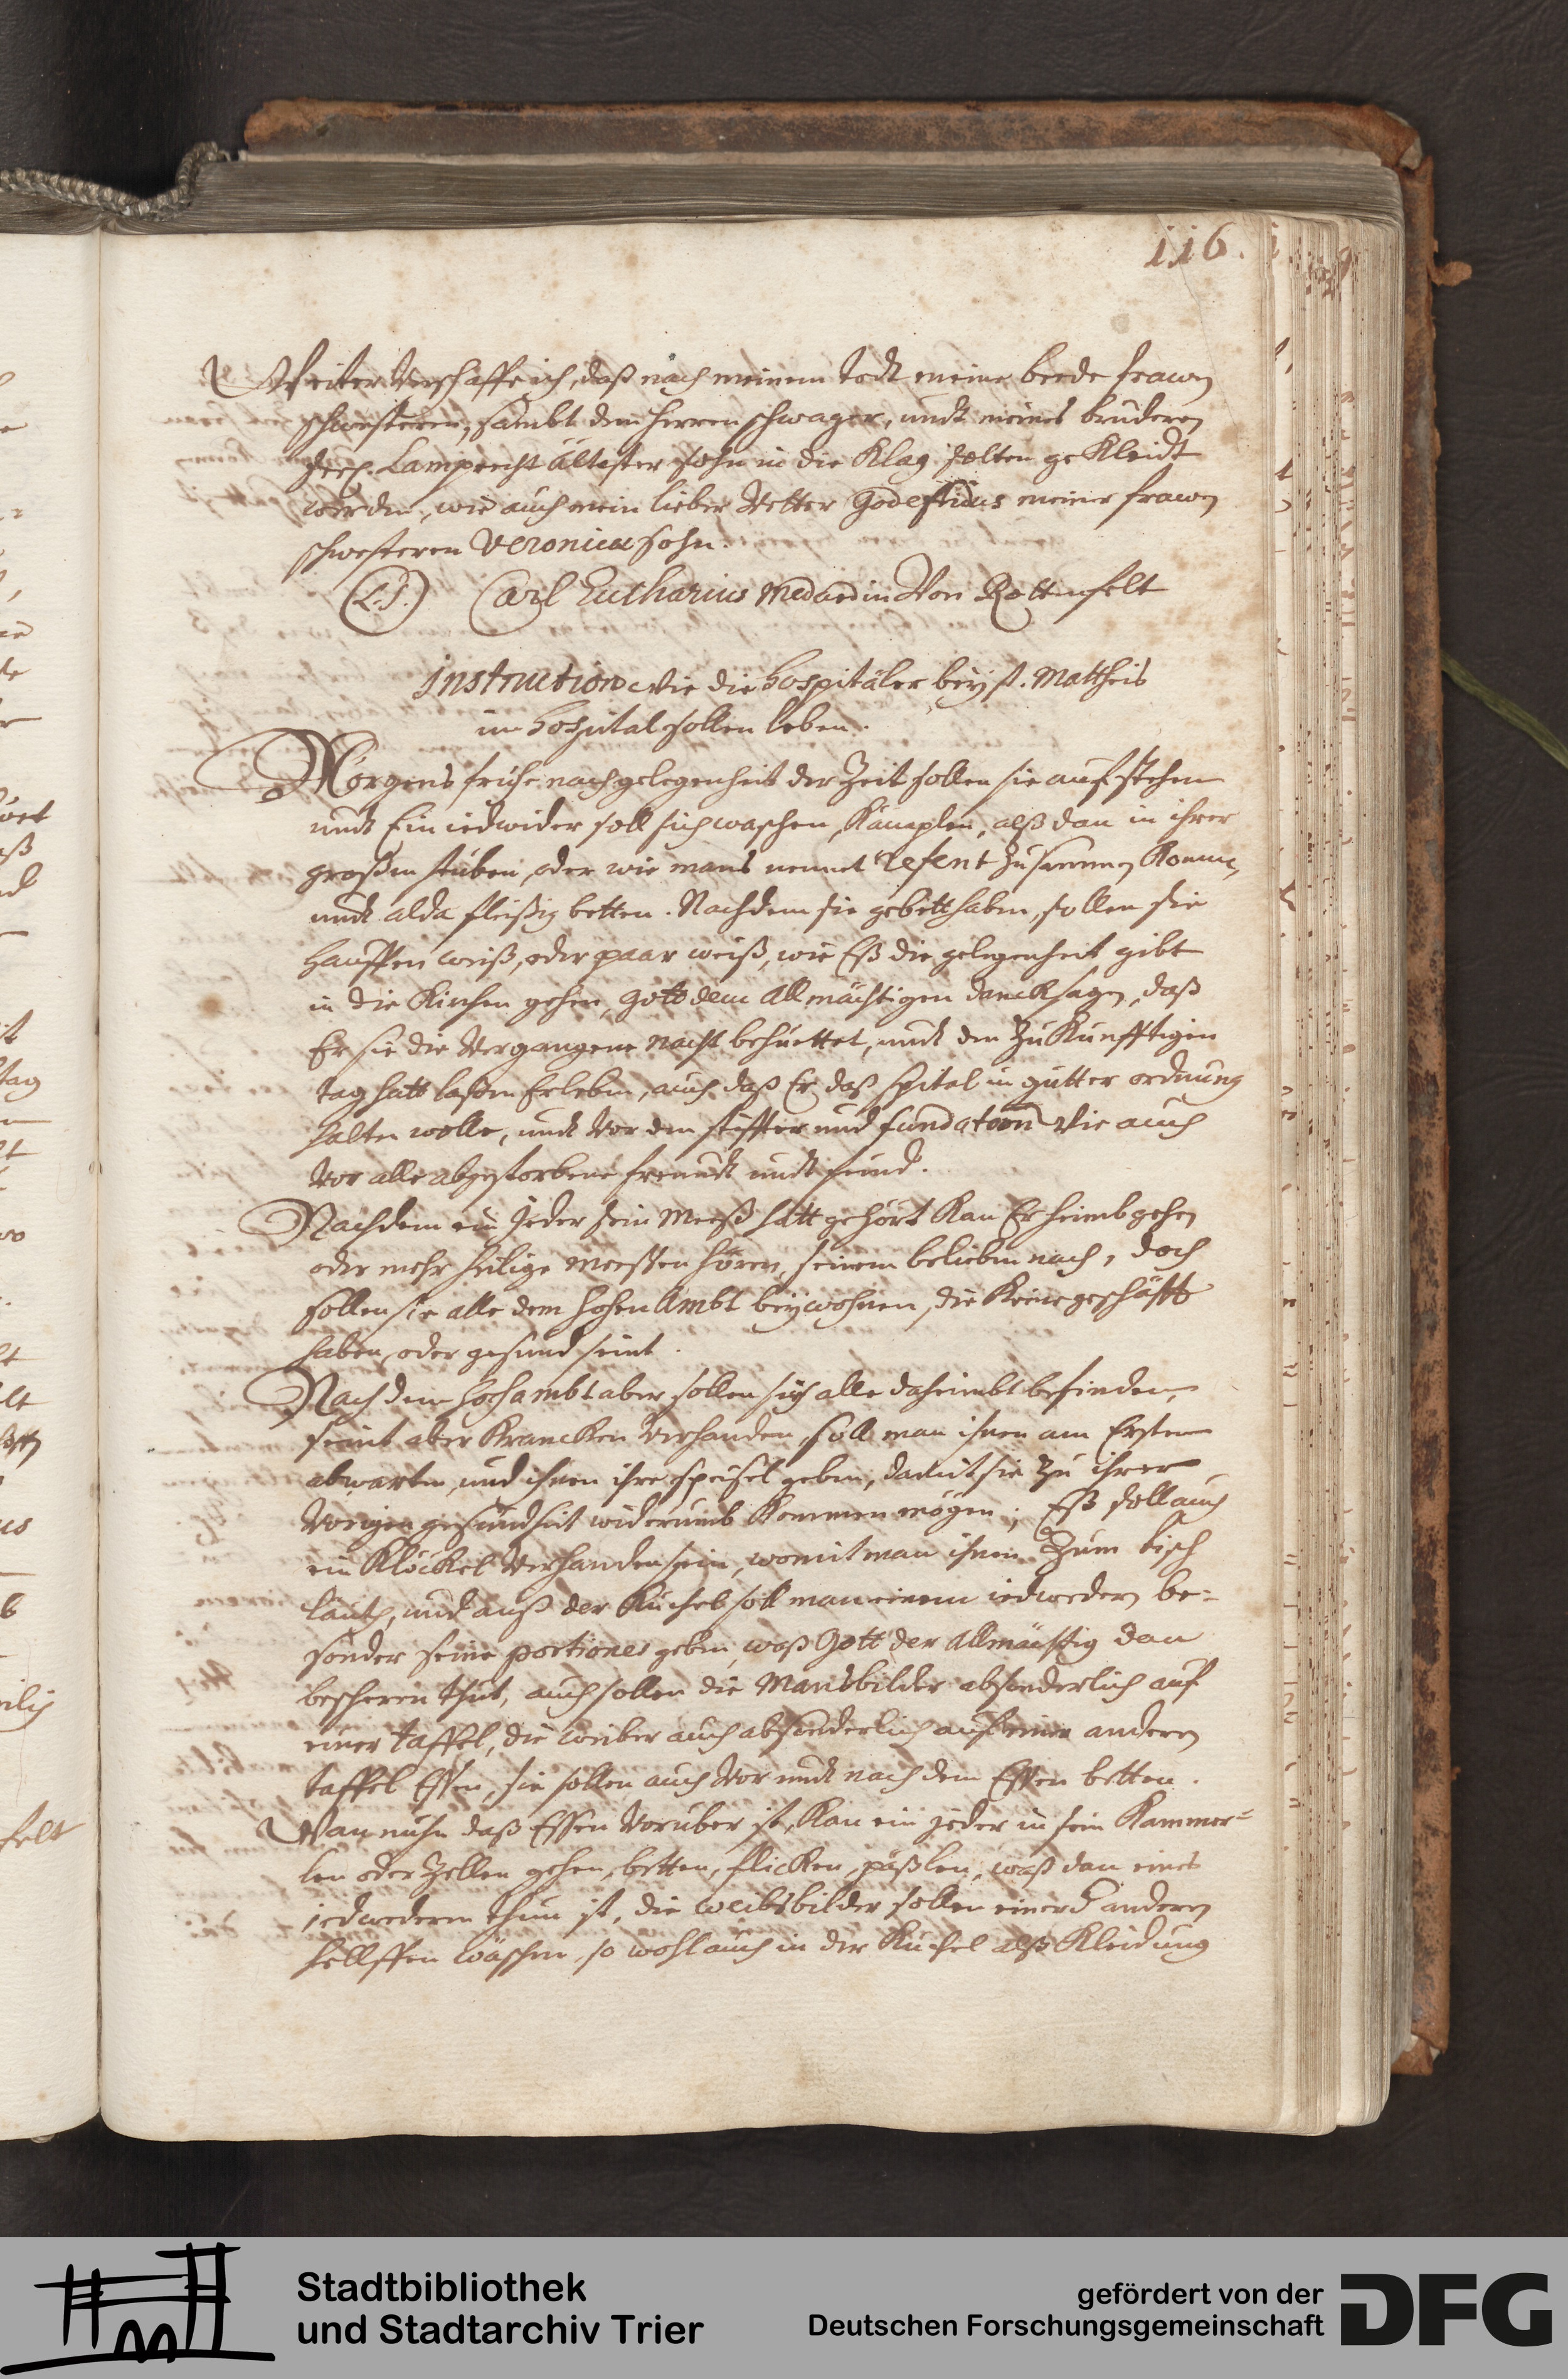 116.
Weiter verschaffe ich, daß nach meinem todt meine beede frawen
schwesteren, sambt dem herren schwager, undt meines bruderen
Lamprecht ältester sohn in die Klag solten gekleidt
werden, wie auch mein lieber Vetter Godefridus meiner frawen
schwesteren Veronicae sohn.
(L.S.) Carl Eucharius Medard in von Rottenfelt
Instruction wie die Hospitäler bey st. Mattheis
im Hospital sollen leben.
Morgens friehe nach gelegenheit der Zeit sollen sie aufstehen
undt Ein iedwider soll sich waschen, Kämplen, alß dan in ihrer
großen stuben, oder wie mans nennet refent Zusammen Komme,
undt alda fleißig betten. Nachdem sie gebett haben, sollen sie
hauffen weiß, oder paar weiß, wie Eß die gelegenheit gibt
in die Kirchen gehen, Gott dem Allmächtigen dancksagen, daß
Er sie die Vergangene nacht behuettet, undt den ZuKunfftigen
tag hatt laßen Erleben, auch daß Er daß spital in gutter ordnung
halten wolle, undt vor den stiffter und fundatorn wie auch
vor alle abgestorbene freundt undt feind.
Nachdem ein Jeder sein Meeß hatt gehört Kan Er heimb gehen
oder mehr heilige Meessen hören, seinem belieben nach, doch
sollen sie alle dem hohen Ambt beywohnen, die Keine geschäfft
haben, oder gesund seint.
Nach dem hochambt aber sollen sich alle daheimbt befinden,
seint aber Krancken verhanden, soll man ihnen am Ersten
abwarten, und ihnen ihre speisel geben, damit sie Zu ihrer
Vorigen gesundheit widerumb Kommen mögen; Eß soll auch
ein Klöckel verhanden sein, womit man ihnen Zum tisch
läuth, und auß der Kuchel soll man einem iedweden be-
sonder seine portiones geben, waß Gott der Allmächtig dan
bescheren thut, auch sollen die Mansbilder absonderlich auf
einer taffel, die weiber auch absonderlich auf einer anderen
taffel Essen, sie sollen auch vor undt nach dem Essen betten.
Wan nuhn daß Essen vorüber ist, Kan ein jeder in sein Kammer-
len oder Zellen gehen, betten, flicken, päßlen, waß dan eines
jedwederen thun ist, die weibsbilder sollen einerd anderen
helffen wäschen, so wohl auch in der Kuchel alß Kleidung
Stadtbibliothek
und Stadtarchiv Trier
gefördert von der
Deutschen Forschungsgemeinschaft
DFG